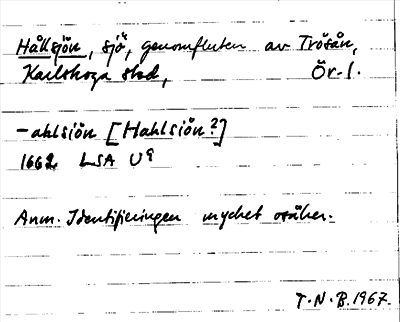 Hållsjön, sjö, genomfluten av Trösån,
Karlskoga stad, Ör. l.
-ahlsiön [Hahlsiön?]
1662 LSA U9
Anm. Identifieringen mycket osäker.
T.N.B. 1967.